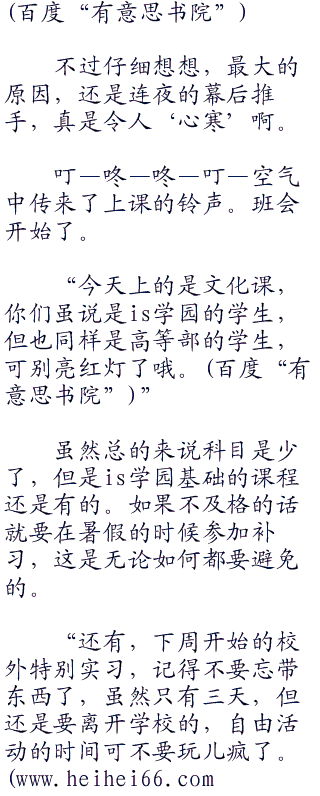 (百度“有意思书院”)
不过仔细想想，最大的
原因，还是连夜的幕后推
手，真是令人‘心寒’啊。
叮—咚—咚—叮—空气
中传来了上课的铃声。班会
开始了。
“今天上的是文化课，
你们虽说是is学园的学生，
但也同样是高等部的学生，
可别亮红灯了哦。(百度“有
意思书院”)”
虽然总的来说科目是少
了，但是is学园基础的课程
还是有的。如果不及格的话
就要在暑假的时候参加补
习，这是无论如何都要避免
的。
“还有，下周开始的校
外特别实习，记得不要忘带
东西了，虽然只有三天，但
还是要离开学校的，自由活
动的时间可不要玩儿疯了。
(www.heihei66.com